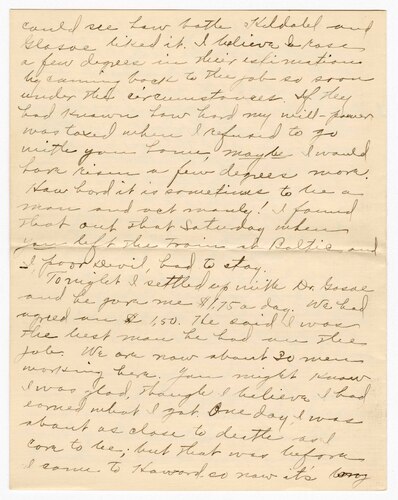 could see how both Kildahl and
Glasoe liked it. I believe I rose
a few degrees in their estimation
by coming back to the job so soon
under the circumstances. If they
had known how hard my will-power
was taxed when I refused to go
with you home, maybe I would
have risen a few degrees more.
How hard it is sometimes to be a
man and act manly! I found
that out that Saturday when
you left the train at Baltic and
I, poor Devil, had to stay.
Tonight I settled up with Dr. Glasoe
and he gave me $1,75 a day. We had
agreed on $1,50. He said I was
the best man he had on the
job. We are now about 30 men
working here. You might know
I was glad, though I believe I had
earned what I got. One day I was
about as close to death as I
care to be, but that was before
I came to Howard so now it's